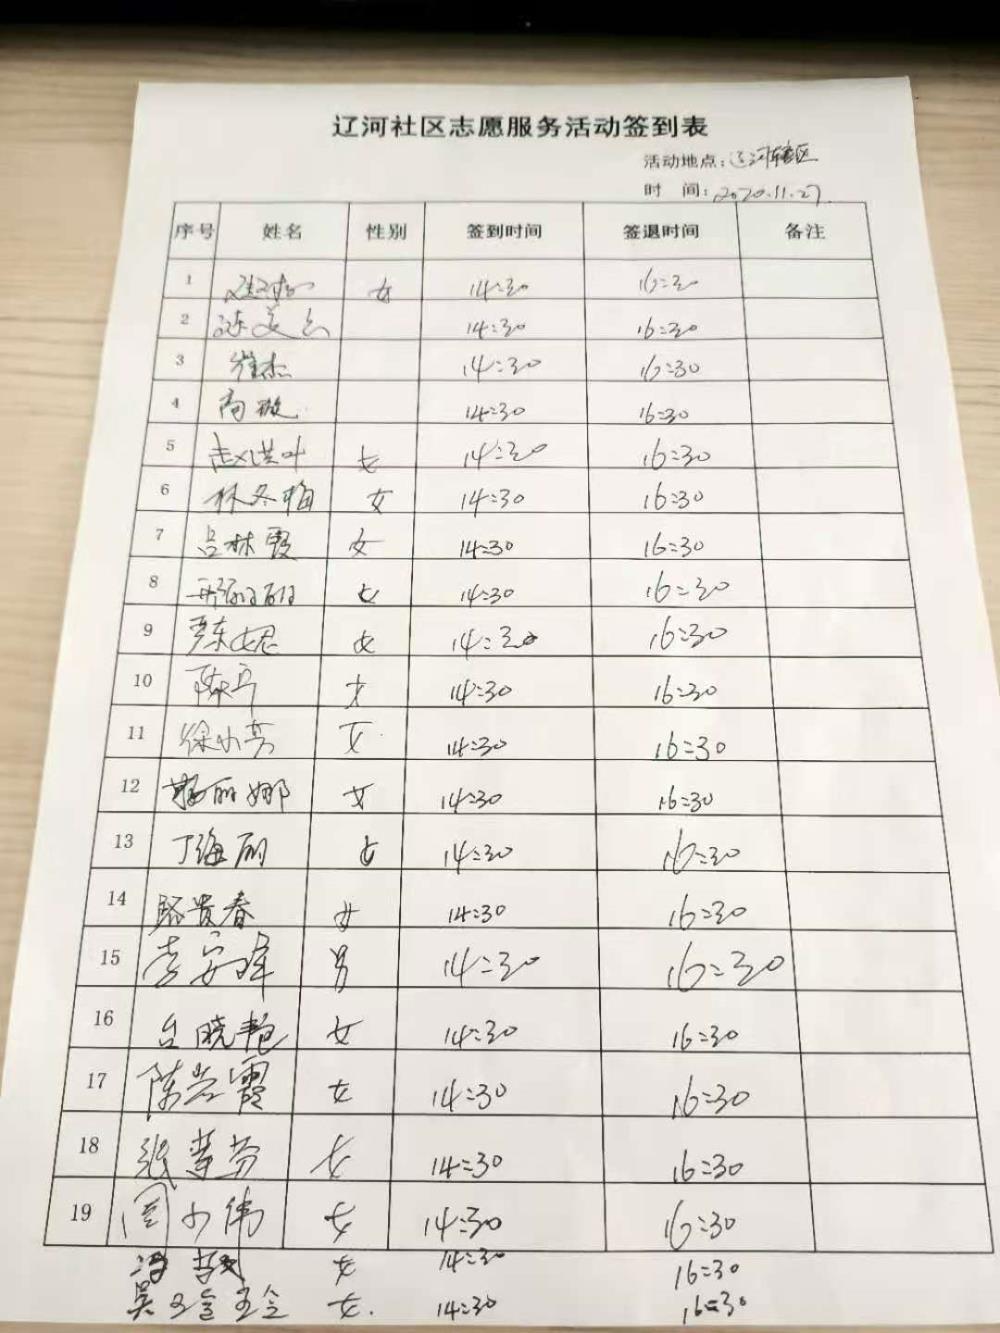 辽河社区志愿服务活动签到表
活动地点：辽河辖区
时 间：2020.11.27.
序号 姓名 性别 签到时间 签退时间 备注
1 女 14:30 16:30
2 14:30 16:30
3 崔杰 14:30 16:30
4 14:30 16:30
5 赵洪叶 女 14:30 16:30
6 林冬梅 女 14:30 16:30
7 吕林霞 女 14:30 16:30
8 女 14:30 16:30
9 女 14:30 16:30
10 14:30 16:30
11 徐小芳 女 14:30 16:30
12 丽娜 女 14:30 16:30
13 丁海丽 女 14:30 16:30
14 骆贵春 女 14:30 16:30
15 李安峰 男 14:30 16:30
16 台晓艳 女 14:30 16:30
17 陈 霞 女 14:30 16:30
18 张 芬 女 14:30 16:30
19 周小伟 女 14:30 16:30
冯 女 14:30 16:30
吴 女. 14:30 16:30